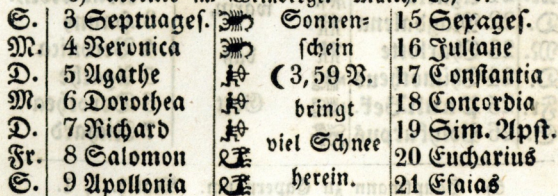 S. 3 Septuages. Sonnen= 15 Sexages.
M. 4 Veronica schein 16 Juliane
D. 5 Agathe (3,59 V. 17 Constantia
M. 6 Dorothea bringt 18 Concordia
D. 7 Richard viel Schnee 19 Sim. Apst.
Fr. 8 Salomon 20 Eucharius
S. 9 Apollonia herein. 21 Esaias